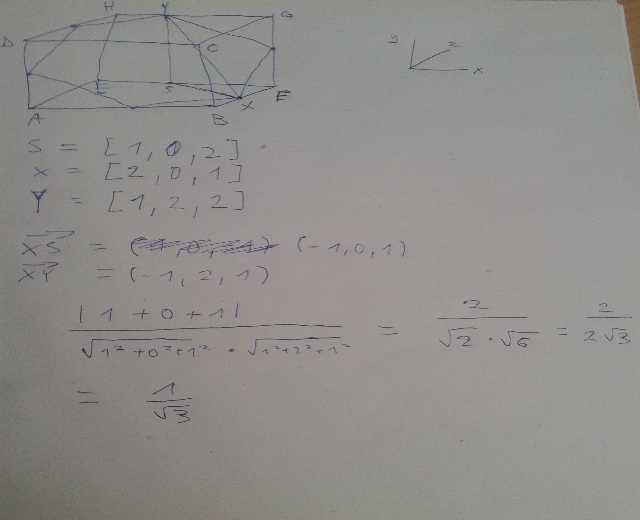 H Y G
D C
E S E
A B X
y z x
S = [1, 0, 2]
X = [2, 0, 1]
Y = [1, 2, 2]
XS = (-1, 0, 1)
XY = (-1, 2, 1)
|1 + 0 + 1| / √1² + 0² + 1² · √1² + 2² + 1² = 2 / √2 · √6 = 2 / 2√3
= 1 / √3